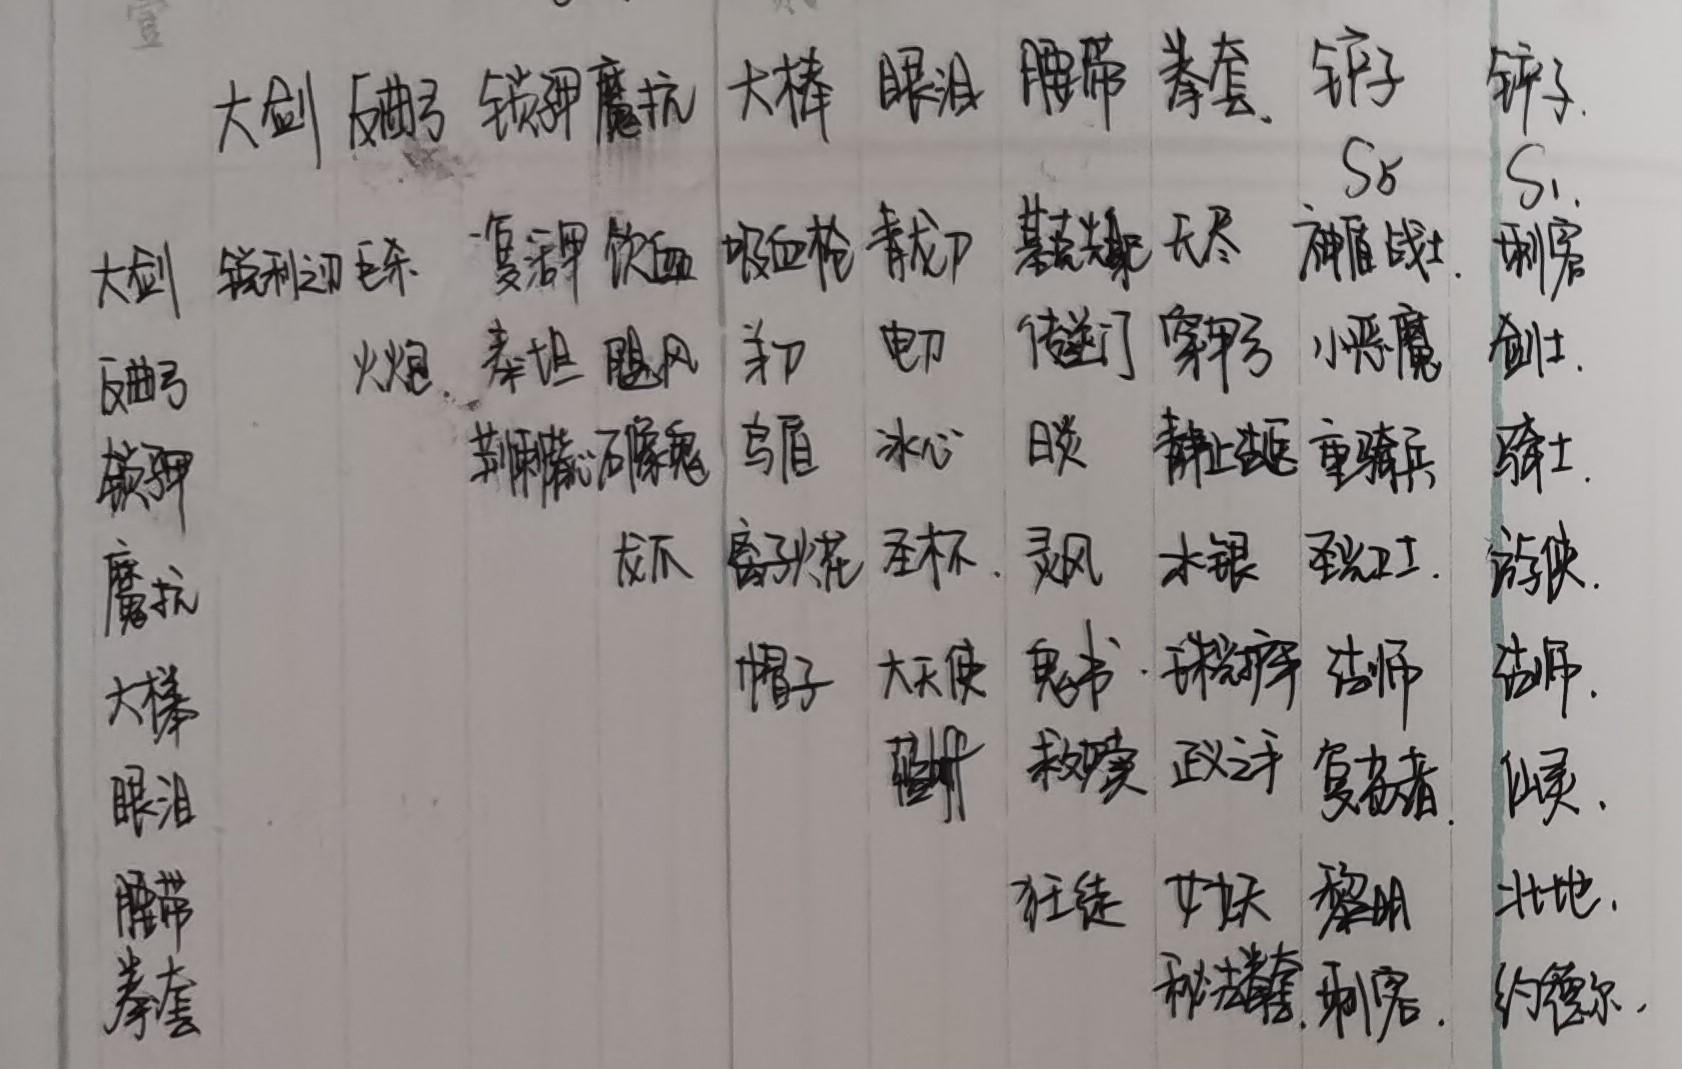 壹
大剑 反曲弓 锁子甲 魔抗 大棒 眼泪 腰带 拳套 铲子 铲子
S5 S1
大剑 锐利之刃 巨杀 复活甲 饮血 吸血枪 青龙刀 基克先驱 无尽 神盾战士 刺客
反曲弓 火炮 泰坦 飓风 羊刀 电刀 传送门 穿甲弓 小恶魔 剑士
锁子甲 荆棘 石像鬼 鸟盾 冰心 日炎 静止法衣 重骑兵 骑士
魔抗 龙爪 离子火花 圣杯 灵风 水银 圣光卫士 游侠
大棒 帽子 大天使 鬼书 法师 法师
眼泪 救赎 正义之手 复苏者 仙灵
腰带 狂徒 女妖 黎明 北地
拳套 秘法拳套 刺客 约德尔